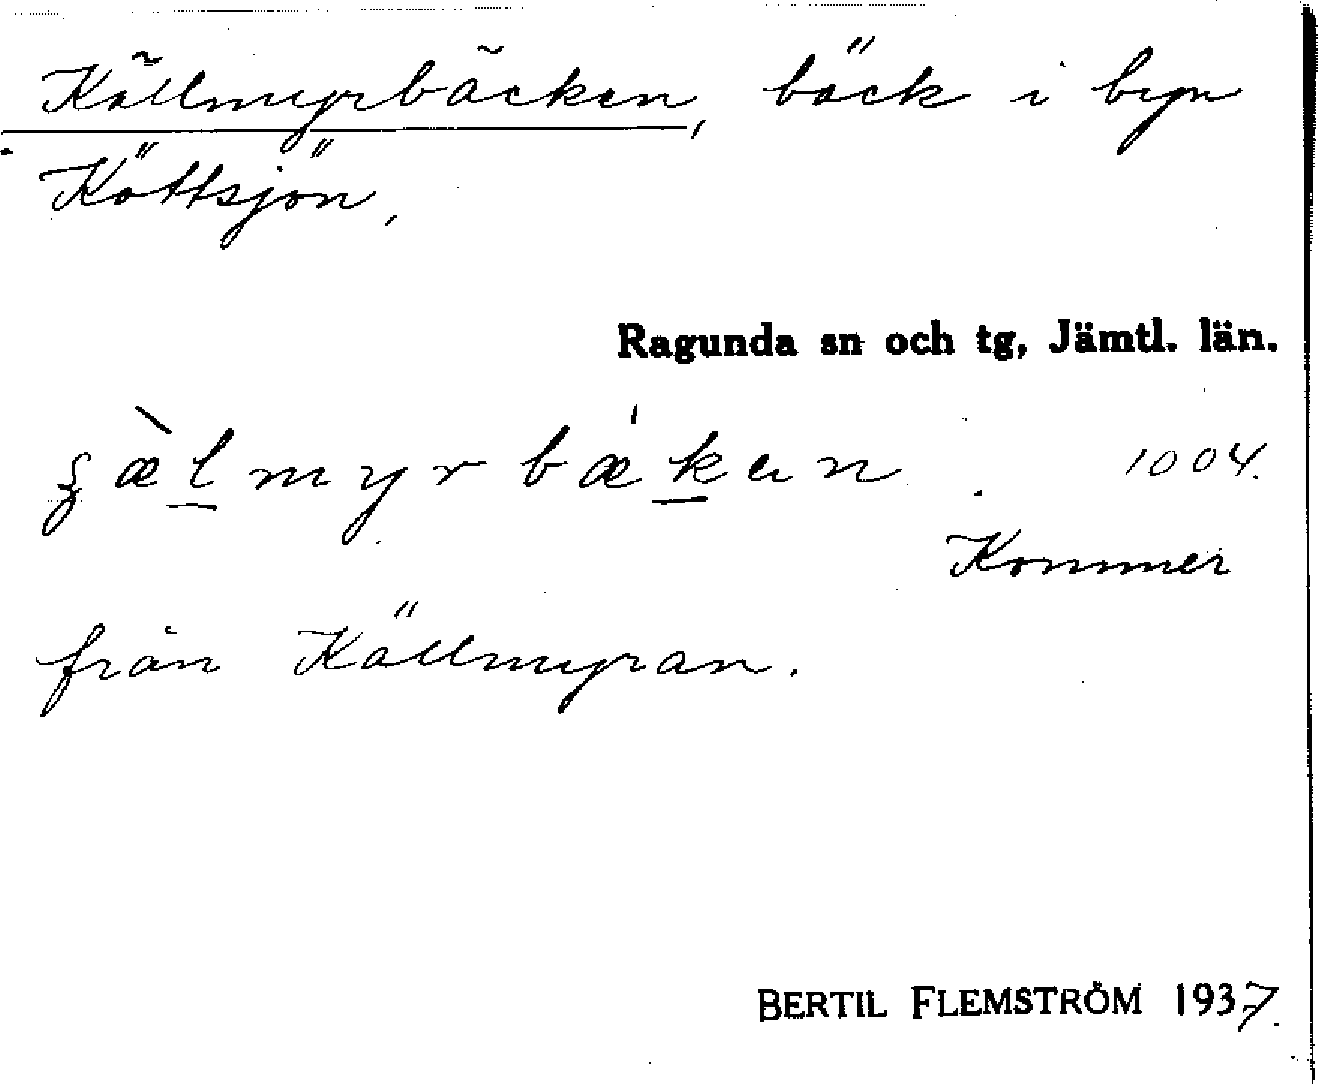 Källmyrbäcken, bäck i byn
Köttsjön,
Ragunda sn och tg, Jämtl. län.
ʂæ̀l̲myrbæ̍k̲en. 1004.
Kommer
från Källmyran.
BERTIL FLEMSTRÖM 1937.